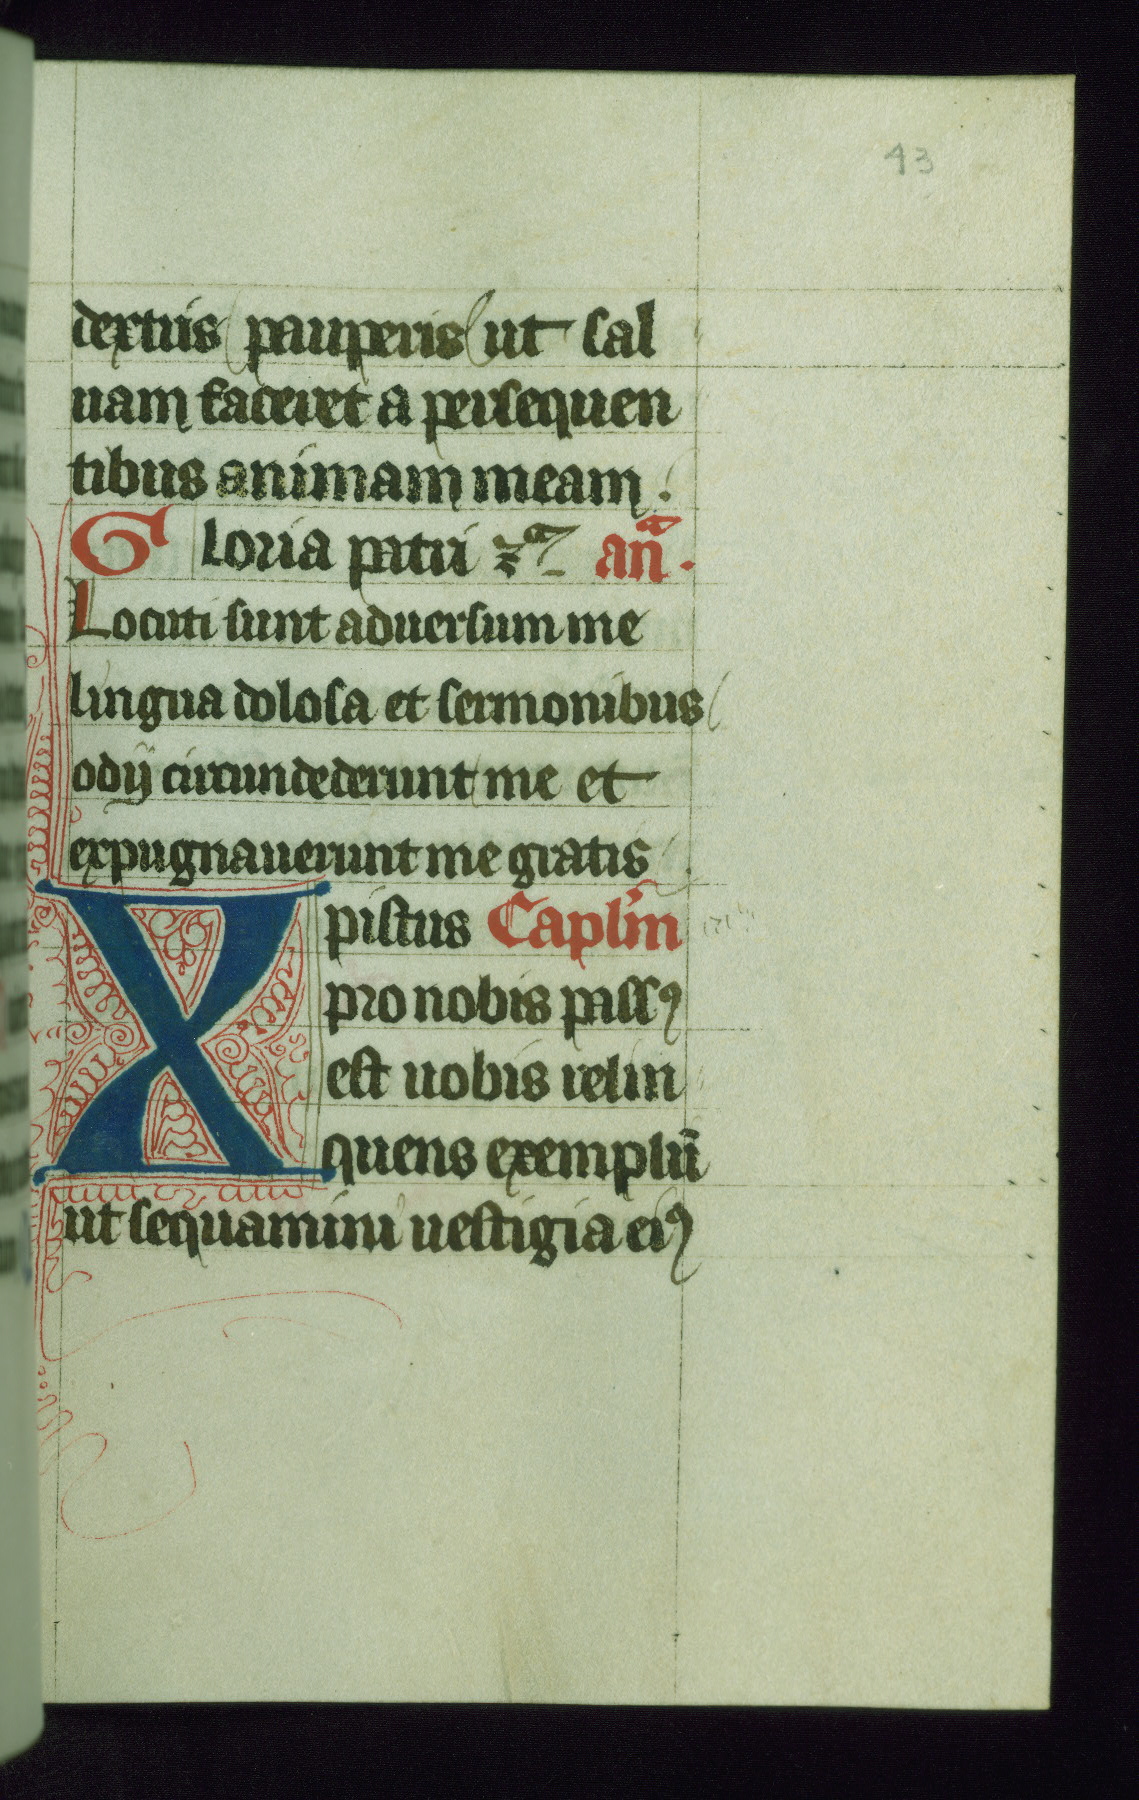 43
dextriis pauperis ut sal
uam faceret a persequen
tibus animam meam.
Gloria patri ⁊cͣ an̄a.
Locuti sunt aduersum me
lingua dolosa et sermonibus
odij circundederunt me et
expugnauerunt me gratis.
Xpistus Caplm̄
pro nobis passꝰ
est uobis relin
quens exemplū
ut sequamini uestigia eiꝰ